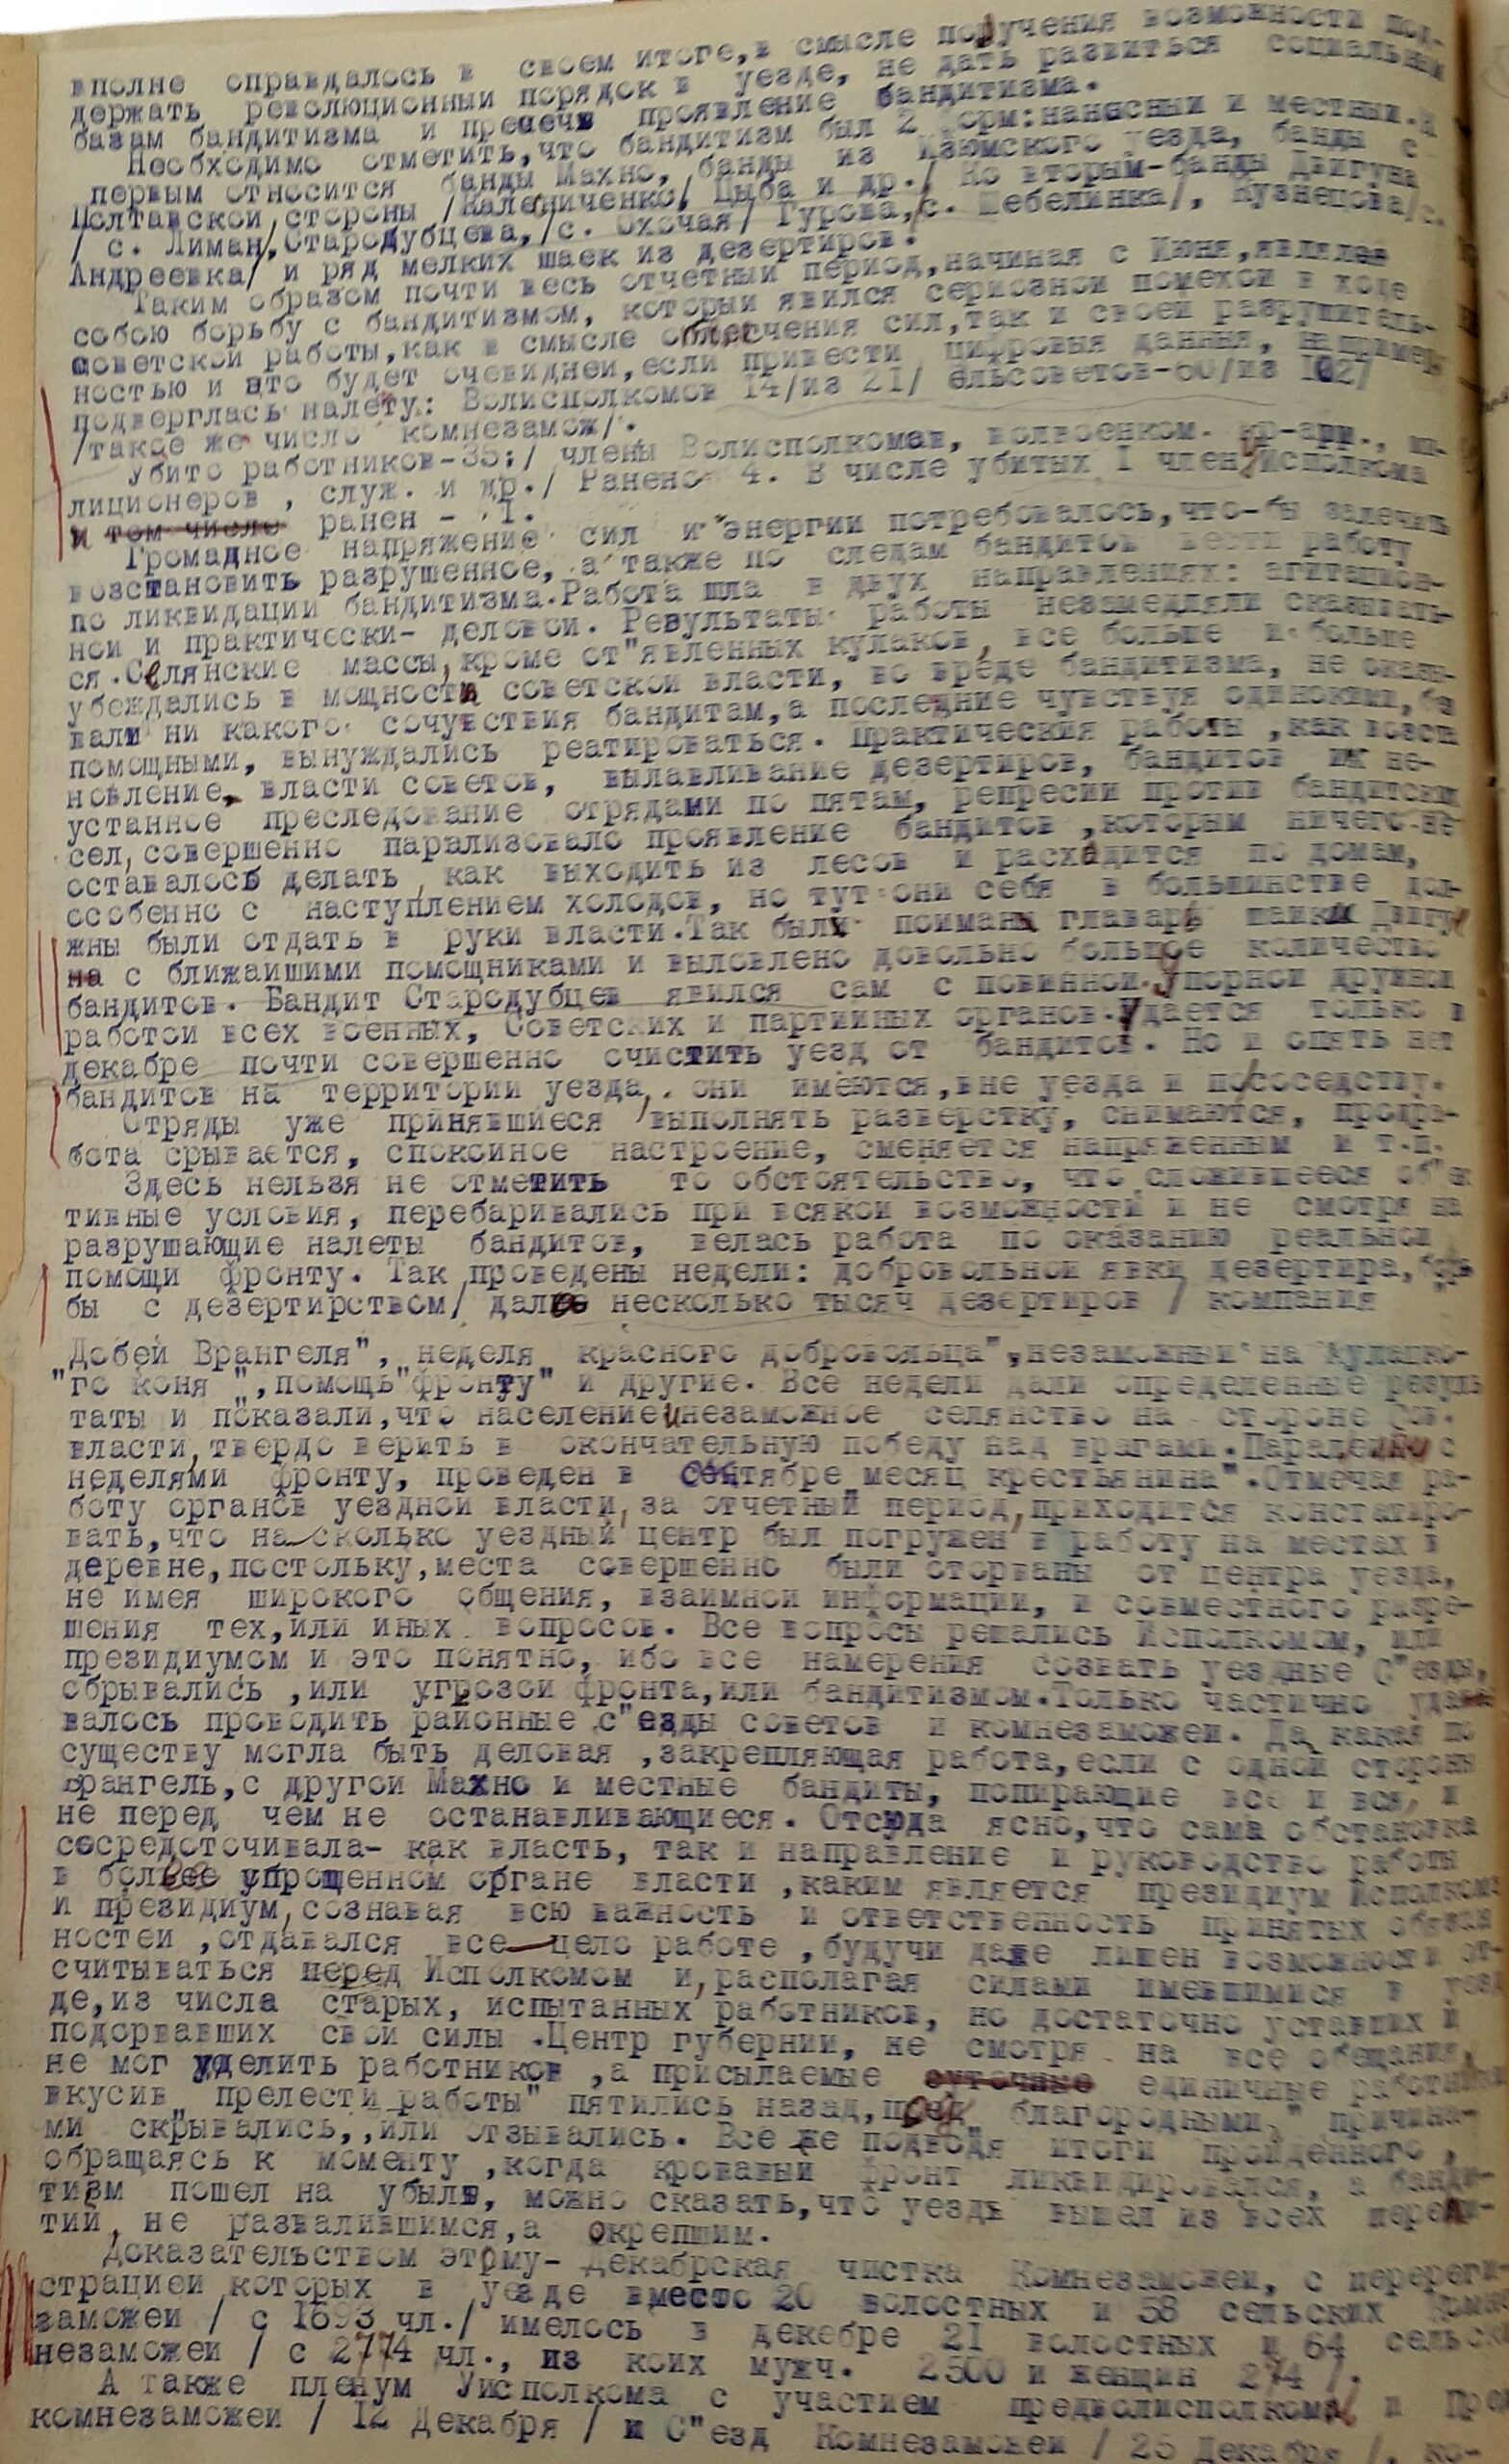 вполне оправдалось в своем итоге,в смысле получения возможности под-
держать революционный порядок в уезде, не дать развиться социальным
базам бандитизма и пресечь проявление бандитизма.
Необходимо отметить,что бандитизм был 2 форм:наносный и местный.К
первым относится банды Махно, банды из Изюмского уезда, банды с
Полтавской стороны /Калениченко/ Цыба и др./ Ко вторым-банды Двигуна
/ с. Лиман/,Стародубцева,/с. Охочая/ Гурова,/с. Шебелинка/, Кузнецова/с.
Андреевка/ и ряд мелких шаек из дезертиров.
Таким образом почти весь отчетный период,начиная с Июня,являлся
собою борьбу с бандитизмом, который явился сериозной помехой в ходе
советской работы,как в смысле сил,так и своей разрушитель-
ностью и это будет очевидней,если привести цифровыя данныя, например,
подверглась налету: Волисполкомов 14/из 21/ ельсоветов-60/из 102/
/такое же число комнезамож/.
Убито работников-35:/ члены Волисполкомов, волвоенком. кр-арм., ми-
лиционеров , служ. и др./ Ранено 4. В числе убитых I член Исполкома
и том числе ранен - I.
Громадное напряжение сил и энергии потребовалось,что-бы залечить
возстановить разрушенное, а также по следам бандитов вести работу
по ликвидации бандитизма.Работа шла в двух направлениях: агитацион-
ной и практически- деловой. Результаты работы незамедляли сказывать-
ся.Селянские массы,кроме от"явленных кулаков, все больше и больше
убеждались в мощности советской власти, во вреде бандитизма, не оказы-
вали ни какого сочувствия бандитам,а последние чувствуя одинокими,бе
помощными, вынуждались реатироваться. Практическия работы ,как возст
новление, власти советов, вылавливание дезертиров, бандитов их не-
устанное преследование отрядами по пятам, репресии против бандитских
сел,совершенно парализовало проявление бандитов ,которым ничего не
оставалось делать , как выходить из лесов и расходится по домам,
особенно с наступлением холодов, но тут они себя в большинстве дол-
жны были отдать в руки власти.Так были поймань главарь шайки Двигу
на с ближайшими помощниками и выловлено довольно большое количество
бандитов. Бандит Стародубцев явился сам с повинной.Упорной дружной
работой всех военных, Советских и партийных органов.Удается только в
декабре почти совершенно очистить уезд от бандитов. Но и опять нет
бандитов на территории уезда,. они имеются,вне уезда и пососедству.
Отряды уже принявшиеся выполнять разверстку, снимаются, продра-
бота срывается, спокойное настроение, сменяется напряженным и т.п.
Здесь нельзя не отметить то обстоятельство, что сложившееся об"ек
тивные условия, перебаривались при всякой возможности и не смотря на
разрушающие налеты бандитов, велась работа по оказанию реальной
помощи фронту. Так проведены недели: добровольной явки дезертира,борь
бы с дезертирством/ дало несколько тысяч дезертиров / компания "
Добей Врангеля", неделя красного добровольца",незаможный на Кулацко-
"го коня ",помощь"фронту" и другие. Все недели дали определенные резуль
таты и показали,что население и незаможное селянство на стороне Сов.
власти,твердо верить в окончательную победу над врагами.Паралельно с
неделями фронту, проведен в сентябре месяц крестьянина".Отмечая ра-
боту органов уездной власти,за отчетный период,приходится констатиро-
вать,что на сколько уездный центр был погружен в работу на местах в
деревне,постольку,места совершенно были оторваны от центра уезда,
не имея широкого общения, взаимной информации, и совместного разре-
шения тех,или иных вопросов. Все вопросы решались Исполкомом, или
президиумом и это понятно, ибо все намерения созвать уездные С"езды,
обрывались ,или угрозой фронта,или бандитизмом.Только частично удава
валось проводить районные с"езды советов и комнезаможей. Да какая по
существу могла быть деловая ,закрепляющая работа,если с одной стороны
Врангель,с другой Махно и местные бандиты, попирающие все и вся, и
не перед чем не останавливающиеся. Отсюда ясно,что сама обстановка
сосредоточивала- как власть, так и направление и руководство работы
в более упрощенном органе власти ,каким является президиум Исполкома
и президиум,сознавая всю важность и ответственность принятых обязан
ностей ,отдавался все цело работе ,будучи даже лишен возможности от-
считываться перед Исполкомом и,располагая силами имевшимися в уез
де,из числа старых, испытанных работников, но достаточно уставших и
подорвавших свои силы .Центр губернии, не смотря на все обещания,
не мог уделить работников ,а присылаемые единичные работники
вкусив „прелести работы" пятились назад,под благородными," причина-
ми скрывались,,или отзывались. Все же подводя итоги пройденного ,
обращаясь к моменту ,когда кровавый фронт ликвидировался, а банди-
тизм пошел на убыль, можно сказать,что уездь вышел из всех перепи-
тий, не развалившимся,а окрепшим.
Доказательством этому- декабрская чистка Комнезаможей, с перереги-
страцией которых в уезде вместо 20 волостных и 58 сельских Комне
заможей / с 1693 чл./ имелось в декебре 21 волостных и 64 сельски
незаможей / с 2774 чл., из коих мужч. 2500 и женщин 274 /.
А также пленум Уисполкома с участием предволисполкома и Пред
комнезаможей / 12 Декабря / и С"езд Комнезаможей / 25 Декабря /, ко-